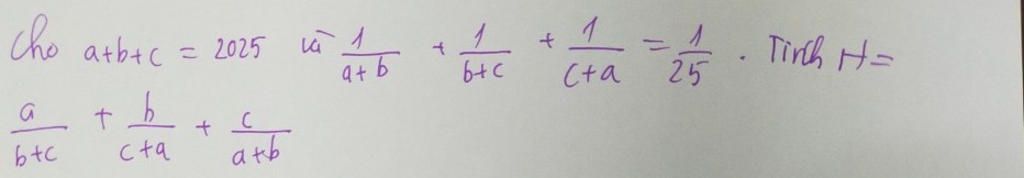 Cho a+b+c = 2025 và 1/(a+b) + 1/(b+c) + 1/(c+a) = 1/25 . Tính H =
a/(b+c) + b/(c+a) + c/(a+b)